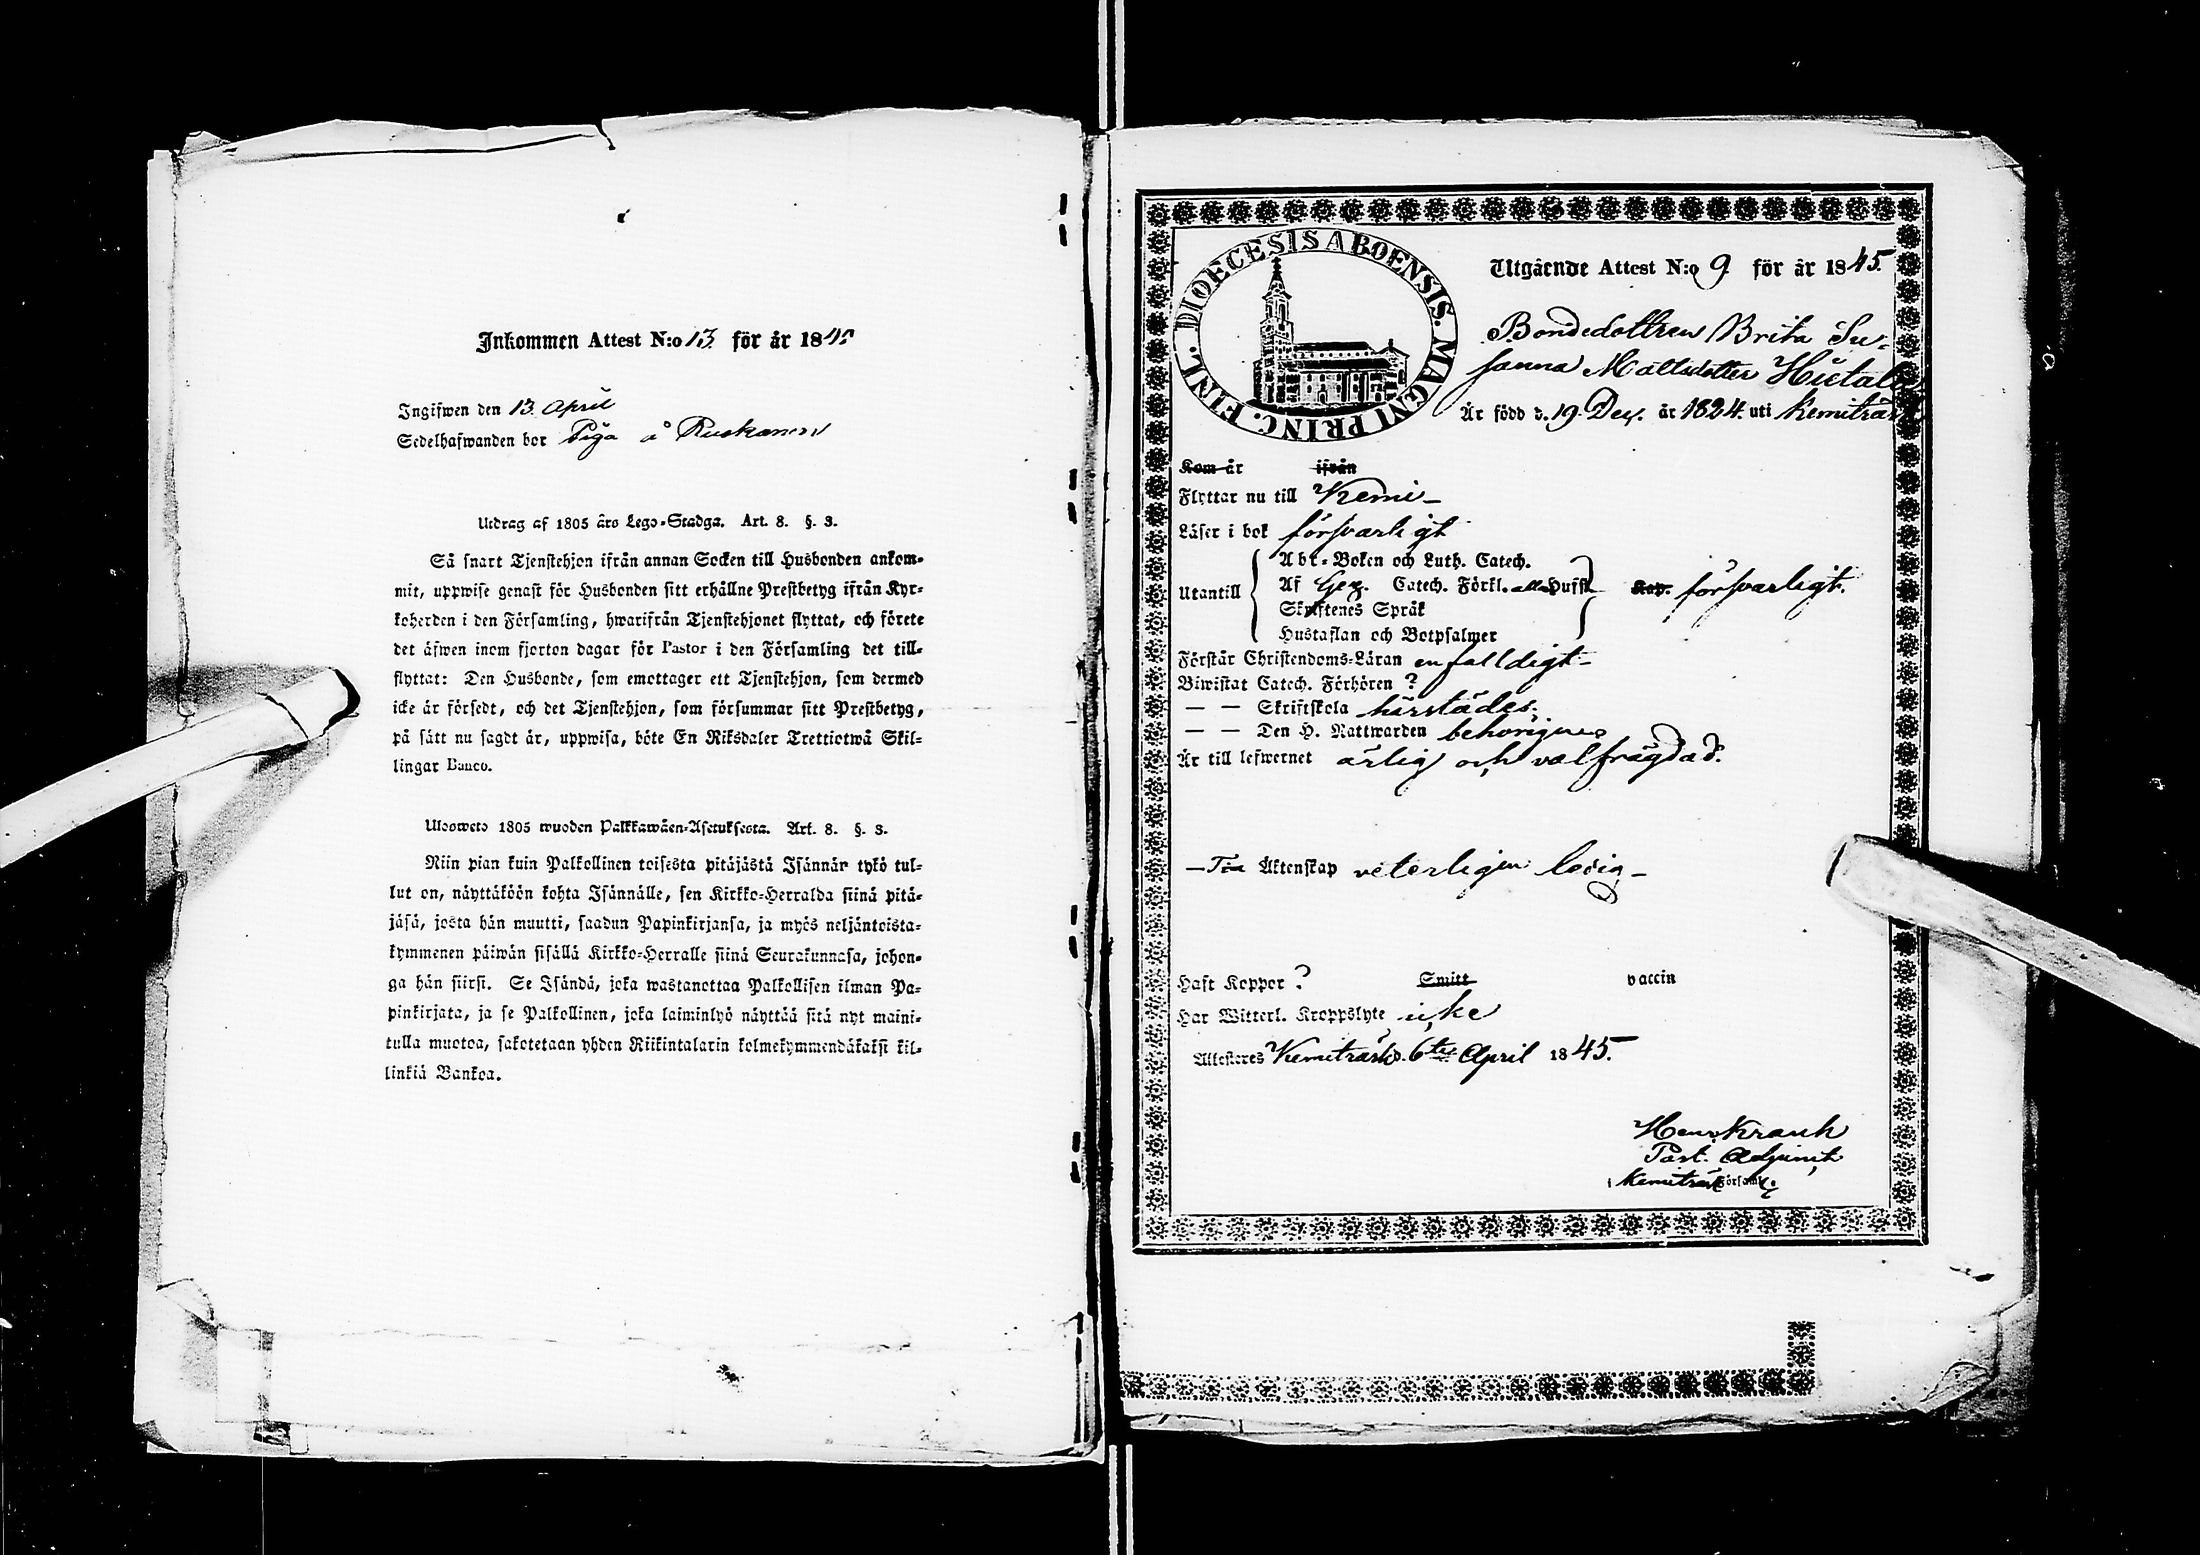 Inkommen Attest N:o 13. för år 1845
Ingifwen den 13. April
Sedelhafwanden bor Piga å Ruokanen
Utdrag af 1805 års Lego-Stadga. Art. 8. §. 3.
Så snart Tjenstehjon ifrån annan Socken till Husbonden ankom-
mit, uppwise genast för Husbonden sitt erhållne Prestbetyg ifrån Kyr-
koherden i den Församling, hwarifrån Tjenstehjonet flyttat, och förete
det äfwen inom fjorton dagar för Pastor i den Församling det till-
flyttat: Den Husbonde, som emottager ett Tjenstehjon, som dermed
icke är försedt, och det Tjenstehjon, som försummar sitt Prestbetyg,
på sätt nu sagdt är, uppwisa, böte En Riksdaler Trettiotwå Skil-
lingar Banco.
Ulosweto 1805 wuoden Palkkawäen-Asetuksesta. Art. 8. §. 3.
Niin pian kuin Palkollinen toisesta pitäjästä Isännär tykö tul-
lut on, näyttäköön kohta Isännälle, sen Kirkko-Herralda siinä pitä-
jäsä, josta hän muutti, saadun Papinkirjansa, ja myös neljäntoista-
kymmenen päiwän sisällä Kirkko-Herralle siinä Seurakunnasa, johon-
ga hän siirsi. Se Isändä, joka wastanottaa Palkollisen ilman Pa-
pinkirjata, ja se Palkollinen, joka laiminlyö näyttää sitä nyt maini-
tulla muotoa, sakotetaan yhden Riikintalarin kolmekymmendäkaksi kil-
linkiä Bankoa.
DIOECESIS ABOENSIS. MAGNI PRINC. FINL.
Utgående Attest N:o 9 för år 1845.
Bondedottren Brita Su-
sanna Mattsdotter Hietala
Är född d. 19 Dec. år 1824. uti Kemiträsk
Kom år ifrån
Flyttar nu till Kemi –
Läser i bok försvarligt
Utantill
Abc-Boken och Luth. Catech.
Af Gez. Catech. Förkl. alla Hufst. Kap. försvarligt.
Skriftenes Språk
Hustaflan och Botpsalmer
Förstår Christendoms-Läran enfalldigt –
Biwistat Catech. Förhören ?
— — Skriftskola härstädes.
— — Den H. Nattwarden behörigen
Är till lefwernet ärlig och välfrägdad.
— Till Äktenskap veterligen ledig –
Haft Koppor ? Smitt vaccin
Har Witterl. Kroppslyte icke
Attesteres Kemiträsk d. 6te April 1845.
Henr. Krank
Past. Adjunct
i Kemiträsk Församl.